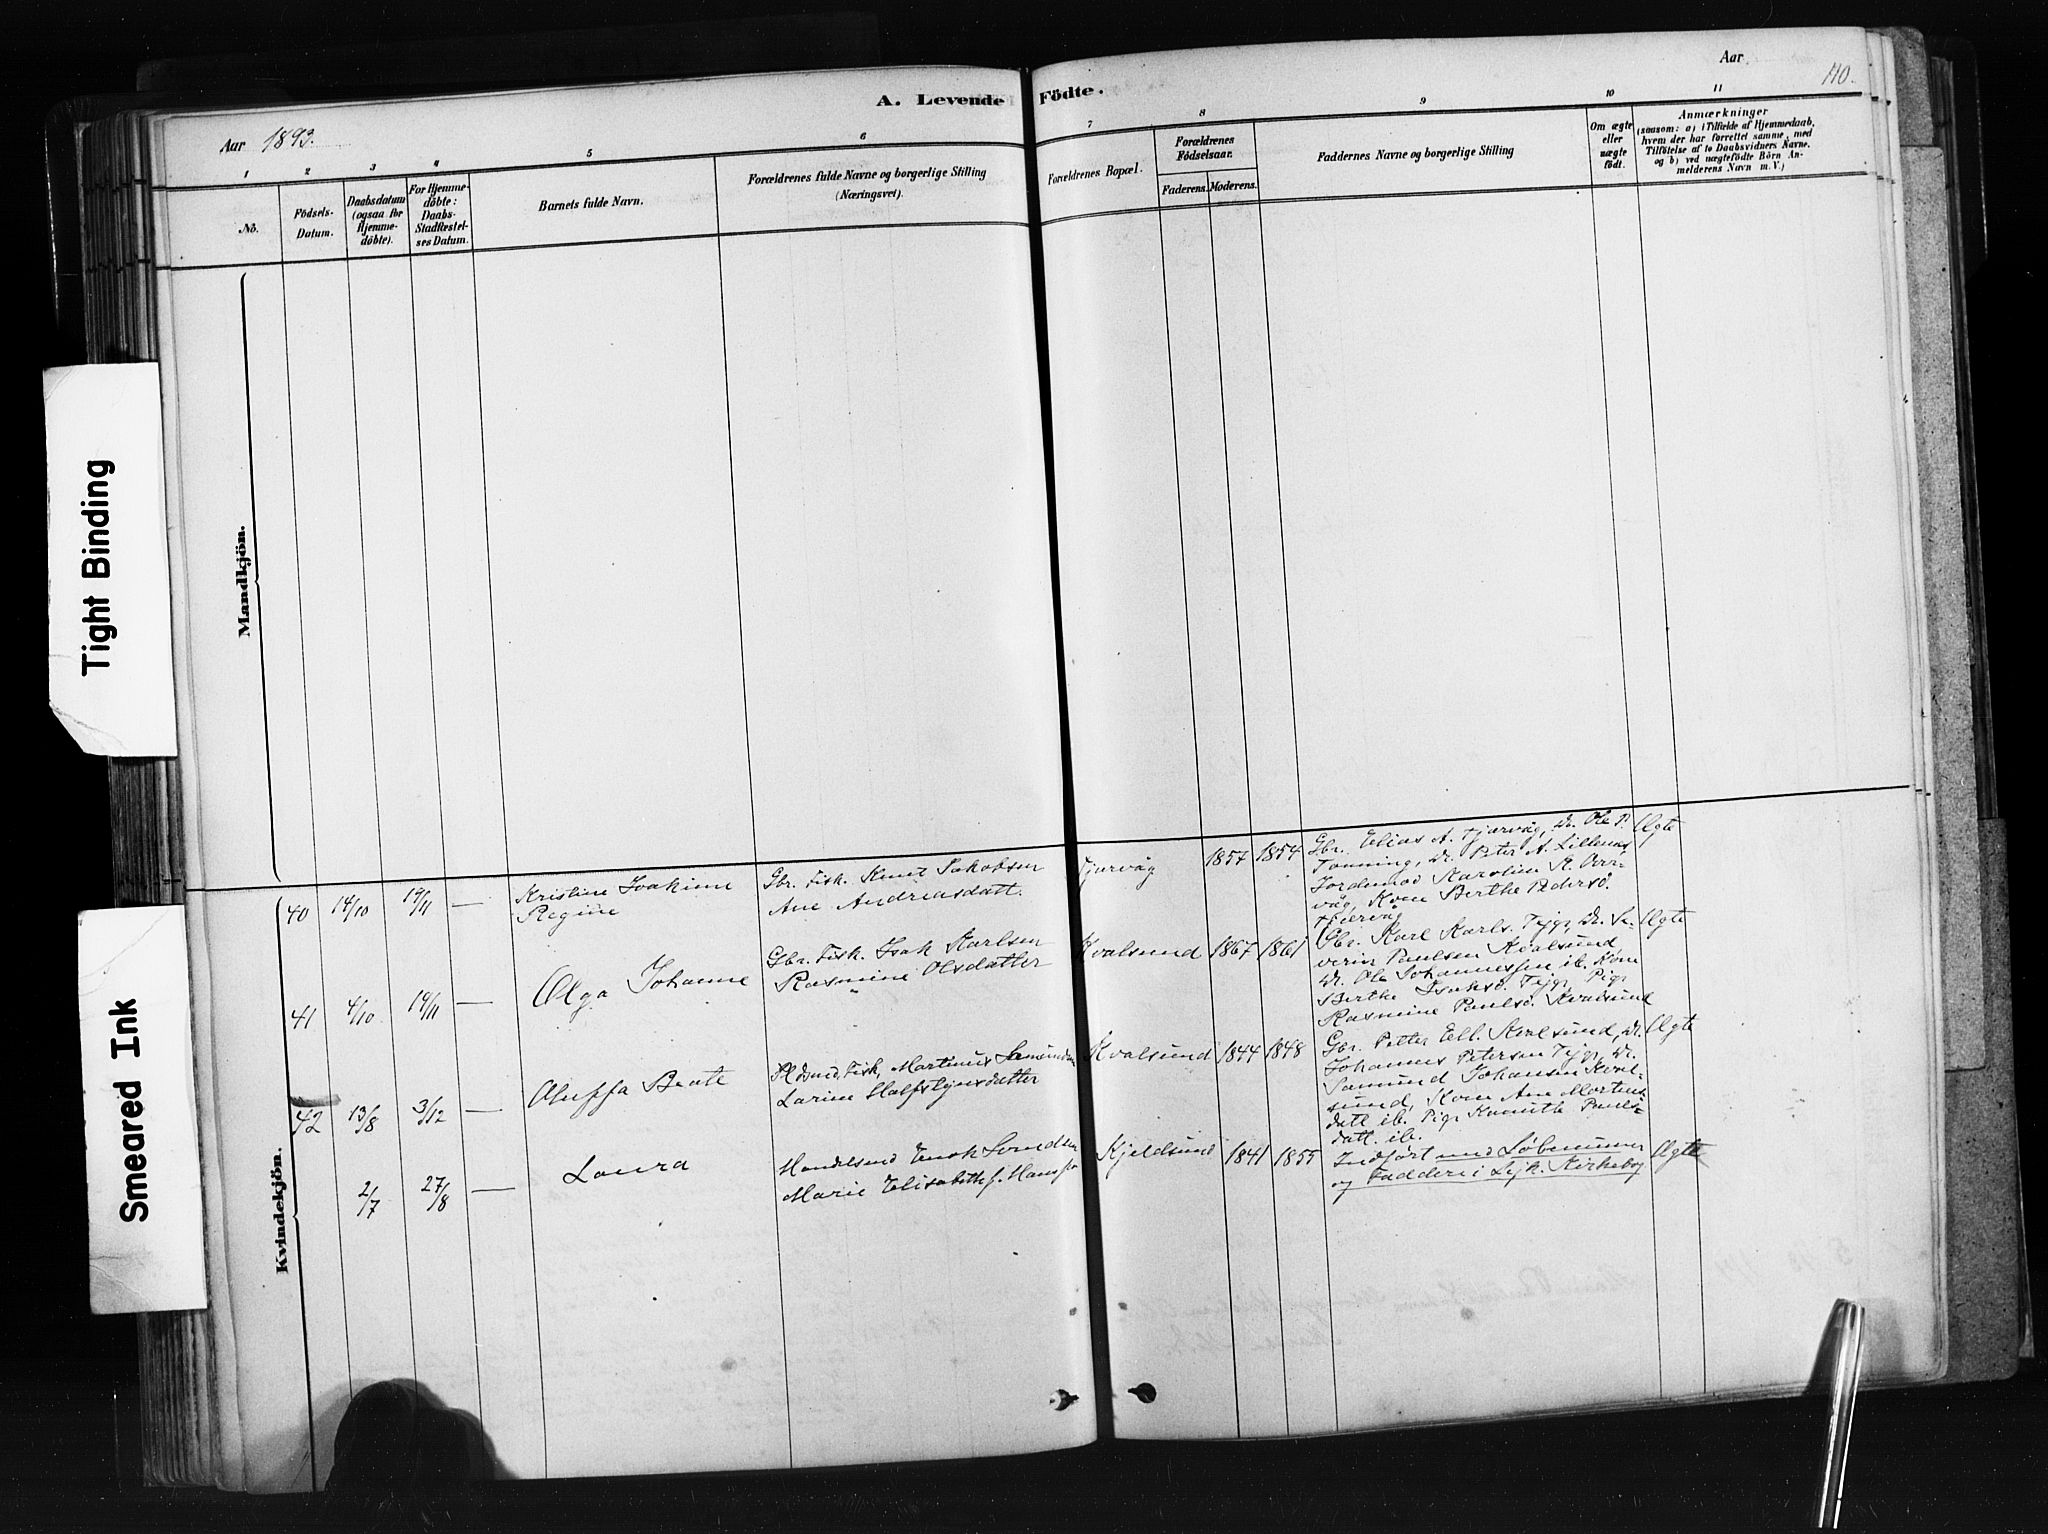 Aar 1893.
A. Levende Födte.
Aar
110.
1
2
3
4
5
6
7
8
9
10
11
No.
Födsels-
Datum.
Daabsdatum
(ogsaa for
Hjemme-
döbte).
For Hjemme-
döbte:
Daabs-
Stadfæstel-
ses Datum.
Barnets fulde Navn.
Forældrenes fulde Navne og borgerlige Stilling
(Næringsvei).
Forældrenes Bopæl.
Forældrenes
Födselsaar.
Faderens.
Moderens.
Faddernes Navne og borgerlige Stilling
Om ægte
eller
uægte
födt.
Anmærkninger
(saasom: a) i Tilfælde af Hjemmedaab,
hvem der har forrettet samme, med
Tilföielse af to Daabsvidners Navne.
og b) ved uægtefödte Börn An-
melderens Navn m. V.)
Mandkjön.
Kvindekjön.
40 14/10 19/11 — Kristine Joakime
Regine
Gbr. Fisk. Knut Jakobsen
Ane Andreasdatt.
Tjørvåg 1857 1854
Gbr. Elias A. Tjørvåg, Dr. Ole P.
Tonning, Dr. Peter A. Lillenes
Jordemod Karoline R.
våg, Kone Berthe Pedersd.
Tjørvåg
Ægte
41 4/10 19/11 — Olga Johanne
Gbr. Fisk. Isak Karlsen
Rasmine Olsdatter
Kvalsund 1867 1861
Gbr. Karl Karls. Dr. Se-
verin Paulsen Kvalsund,
Dr. Ole Johannessen ib. Kone
Berthe Isaksd. Pige
Rasmine Paulsd. Kvalsund
Ægte
42 13/8 3/12 — Oluffa Beate
Fisk. Martinus
Larine
Kvalsund 1844 1848
Gbr. Petter Ell. Kvalsund, Dr.
Johannes Petersen Dr.
Samund Johansen Kval-
sund, Kone Ane Mortens-
datt. ib. Pige Pauls-
datt. ib.
Ægte
2/7 27/8 — Laura
Handelsmd Enok
Marie Elisabeth f.
Kjeldsund 1841 1855
Indført med Løbenumer
og Faddere i Kirkebog
Ægte
Tight Binding
Smeared Ink